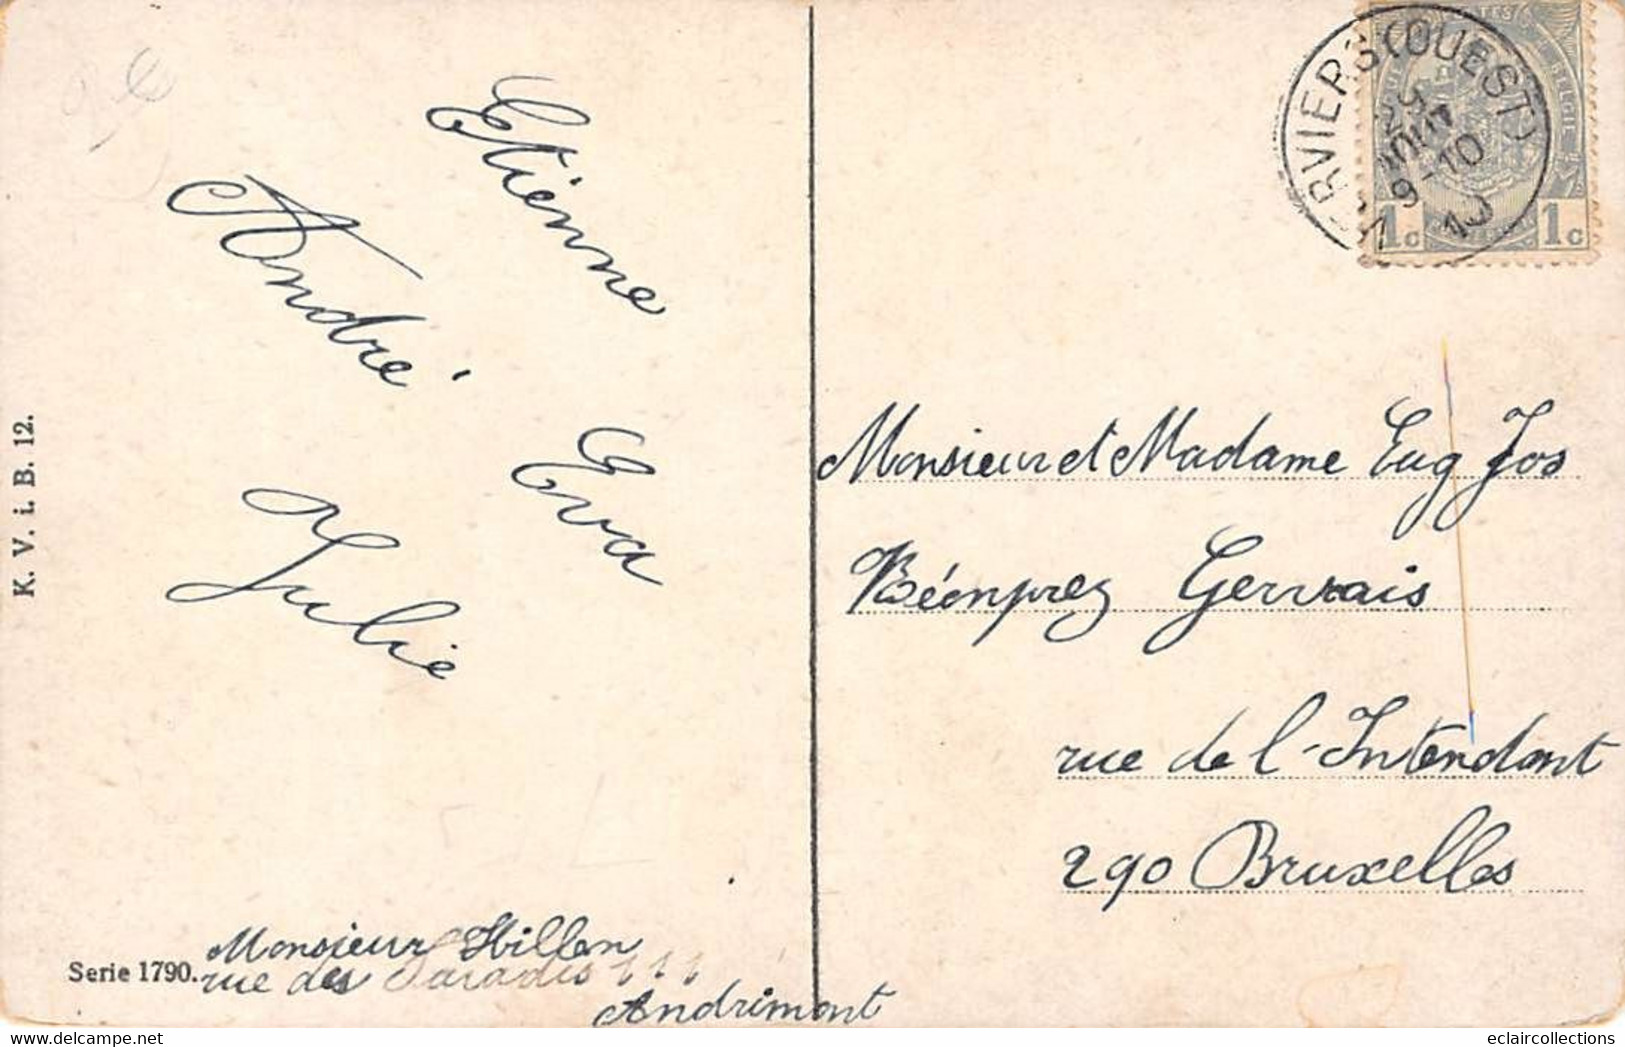 Etienne
André
Eva
Julie
K. V. i. B. 12.
Serie 1790.
Monsieur Hillen
rue des Paradis 111
Andrimont
VERVIERS (OUEST)
25
AOUT
9-10
10
BELGIE
1c 1c
Monsieur et Madame Eug Jos
Béonprez Gervais
rue de l-Intendant
290 Bruxelles
eclaircollections